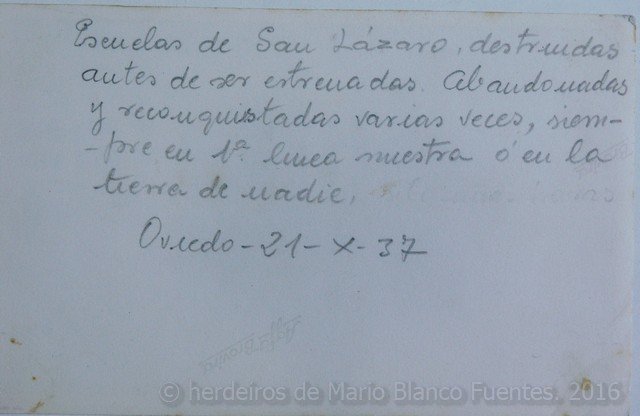 Escuelas de San Lázaro, destruidas
antes de ser estrenadas. Abandonadas
y reconquistadas varias veces, siem-
-pre en 1ª linea nuestra ó en la
tierra de nadie,
Oviedo-21-X-37
© herdeiros de Mario Blanco Fuentes. 2016